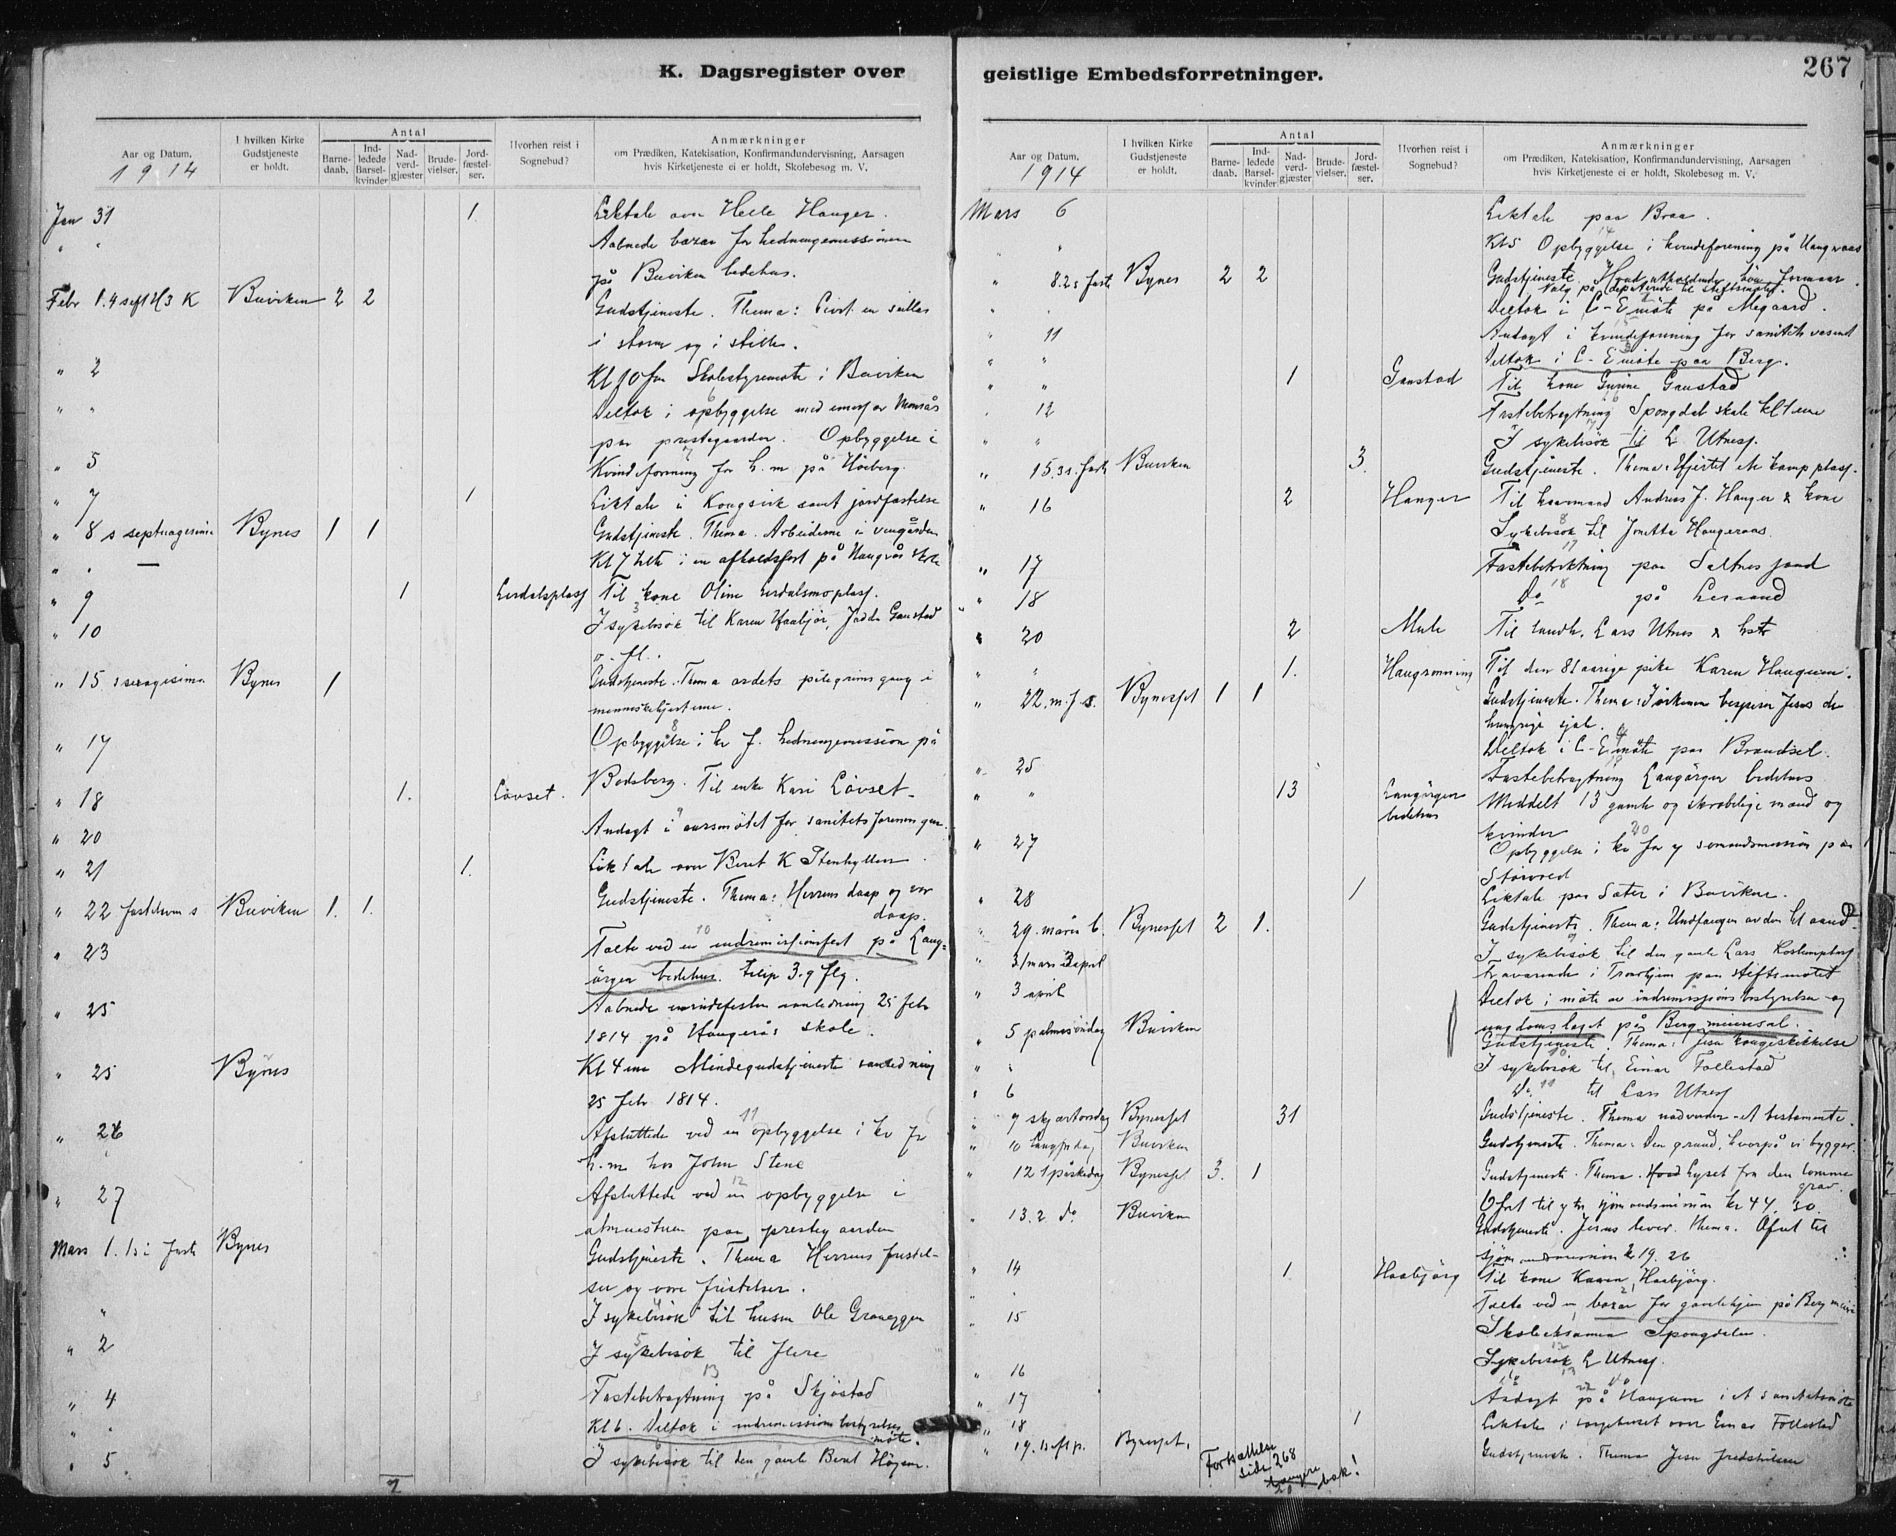 K. Dagsregister over
Aar og Datum,
1914
I hvilken Kirke Gudstjeneste er holdt.
Antal
Barne-daab.
Ind-ledede Barsel-kvinder
Nad-verd-gjæster
Brude-vielser.
Jord-fæstel-ser.
Hvorhen reist i Sognebud?
Anmærkninger
om Prædiken, Katekisation, Konfirmandundervisning, Aarsagen
hvis Kirketjeneste ei er holdt, Skolebesøg m. V.
Jan 31 1. Liktale over Haugen.
" " Aabnede bazar for hedningemissionen
på Buviken bedehus.
Febr 1. 4 s eft H3 K Buviken 2 2 Gudstjeneste. Thema: Livet en seilas
i storm og i stille.
" 2 Kl 10 fm Skolestyremøte i Buviken
" " Deltok i opbyggelse med
paa prestegaarden. Opbyggelse i
" 5 Kvindeforening for h.m. på Høiberg.
" 7 1 Liktale i Kongsvik samt jordfæstelse
" 8 s septuagesima Bynes 1 1 Gudstjeneste. Thema. Arbeiderne i vingården
" " Kl 7 talte i en afholdsfest på Haugrås skole
" 9 1 Lerdalsplass Til kone Oline Lerdalsmoplass.
" 10 I sykebesøk til Karen Haabjør, Gaustad
o. fl.
" 15 s sexagesima Bynes 1 Gudstjeneste. Thema ordets pilegrimsgang i
menneskehjerterne.
" 17 Opbyggelse i kv f. hedningemission på
Bodsberg. Til enke Kari Løvset.
" 18 1. Løvset.
" 20 Andagt i aarsmøtet for sanitetsforeningen.
" 21 1. Liktale over Beret K Stenhyllen.
" 22 fastelavn s Buviken 1. 1. Gudstjeneste. Thema: Herrens daap og vor
daap.
" 23 Talte ved en indremissionsfest på Laug-
ørgen bedehus. Filip 3.9 flg.
" 25 Aabnede mindefesten i anledning 25 febr
1814 på Haugerås skole.
" 25 Bynes Kl 4 em Mindegudstjeneste i anledning
25 febr 1814.
" 26 Afsluttede ved en opbyggelse i kv f
h.m hos John Stene
" 27 Afsluttede ved en opbyggelse i
paa prestegaarden
Mars 1. 1 s i faste Bynes Gudstjeneste. Thema Herrens fristel-
ser og vore fristelser.
" I sykebesøk til husm Ole Graneggen
" 2 I sykebesøk til flere
" 4 Fastebetragtning på Skjøstad
" " Kl 6. Deltok i indremissionsbestyrelses
møte.
" 5 I sykebesøk til den gamle Berit Høgen.
2
geistlige Embedsforretninger.
267
Aar og Datum,
1914
I hvilken Kirke Gudstjeneste er holdt.
Antal
Barne-daab.
Ind-ledede Barsel-kvinder
Nad-verd-gjæster
Brude-vielser.
Jord-fæstel-ser.
Hvorhen reist i Sognebud?
Anmærkninger
om Prædiken, Katekisation, Konfirmandundervisning, Aarsagen
hvis Kirketjeneste ei er holdt, Skolebesøg m. V.
Mars 6 Liktale paa Braa.
" Kl 5 Opbyggelse i kvindeforening på Haugraas
" 8. 2 s faste Bynes 2 2 Gudstjeneste.
Valg på deputerede til stiftsmøtet.
" Deltok i C-E møte på Megaard.
" 11 Andagt i kvindeforening for sanitetsvesenet
" " Deltok i C-E møte paa Berg.
" " 1 Gaustad Til kone Gurine Gaustad
" 12 Fastebetragtning Spongdal skole kl 4 em
" " I sykebesøk til L Utness.
" 15. 3 s. faste Buviken 3. Gudstjeneste. Thema: Hjertet et kampplass.
" 16 2 Haugen Til kaarmand Andreas J. Haugen & kone
Sykebesøk til Jonetta Haugeraas.
" 17 Fastebetraktning paa Saltnessand
" 18 Do på Leraand
" 20 2 Mule Til landh. Lars Utnes & hstr
" 1. Haugrønning Til den 81 aarige pike Karen Haugrøn.
" 22. m. f. s. Bynesset 1 1 Gudstjeneste. Thema: I ørkenen bespiser Jesus de
hungrige sjæle.
Deltok i C-E møte paa Brandsel.
" 25 Fastebetragtning Laugørgen bedehus
" " 13 Laugørgen bedehus Meddelt 13 gamle og skrøbelige mænd og
kvinder
" 27 Opbyggelse i kv for y sømandsmission paa
Størvred
" 28 1 Liktale paa Sæter i Buviken.
" 29. mariæ b. Bynesset 2 1. Gudstjeneste. Thema: Undfangen av den hl aand.
" 31 mars 3 april I sykebesøk til den gamle Lars
Fraværende i Tronhjem paa stiftsmøtet
" 3 april Deltok i møte av indremissjonsbestyrelsen og
ungdomslaget på Berg meieresal.
" 5 palmesøndag Buviken Gudstjeneste. Thema: Jesu kongeskikkelse
" " I sykebesøk til Einar Follestad
" 6 Do til Lars Utness
" 9 skjærtorsdag Bynesset 31 Gudstjeneste. Thema nadverden et testamente.
" 10 langfredag Buviken Gudstjeneste. Thema: Den grund, hvorpå vi bygger.
" 12 1 påskedag Bynesset 3. 1 Gudstjeneste. Thema. Lyset fra den tomme
grav.
Ofret til ytre sjømandsmission kr 44. 30.
" 13. 2 do Buviken Gudstjeneste. Jesus lever. Thema. Ofret til
sjømandsmission kr 19. 26
" 14 1 Haabjørg Til kone Karen Haabjørg.
" " Talte ved en bazar for gamlehjem på Berg meieri
" 15 Skoleeksamen Spongdalen.
" 16 Sykebesøk L Utness.
" 17 Andagt på Haugum i et sanitetsmøte
" 18 1 Liktale i sørgehuset over Einar Follestad
" 19. 1 s eft p. Bynesset. Gudstjeneste. Thema Jesu fredshilsen
Fortsættelse
side 268
længere
bak!
20